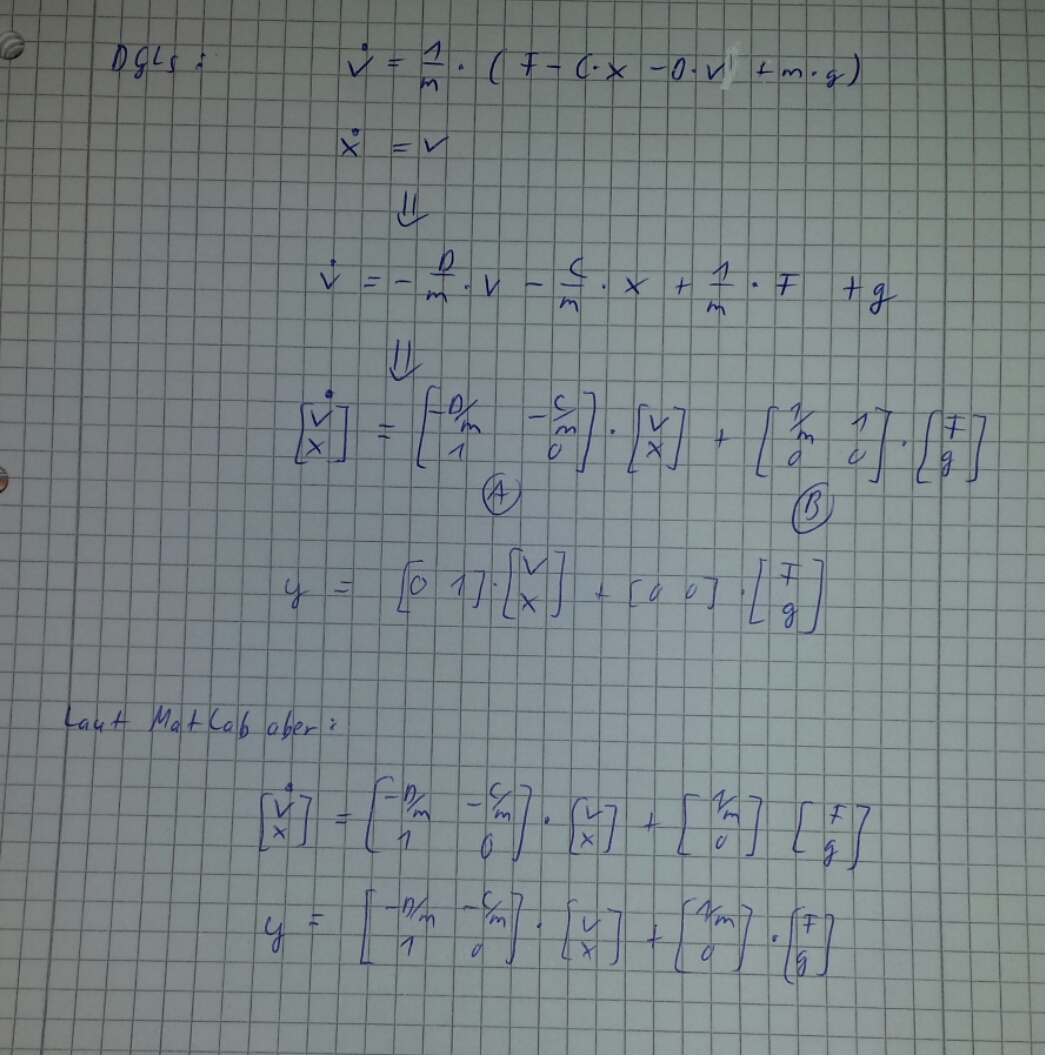 DGLs: v̇ = 1/m · (F - C·x - D·v + m·g)
ẋ = v
⇓
v̇ = - D/m · v - C/m · x + 1/m · F + g
⇓
[v̇; x] = [-D/m -C/m; 1 0] · [v; x] + [1/m 1; 0 0] · [F; g]
(A) (B)
y = [0 1] · [v; x] + [0 0] · [F; g]
Laut MatLab aber:
[v̇; x] = [-D/m -C/m; 1 0] · [v; x] + [1/m; 0] [F; g]
y = [-D/m -C/m; 1 0] · [v; x] + [1/m; 0] · [F; g]